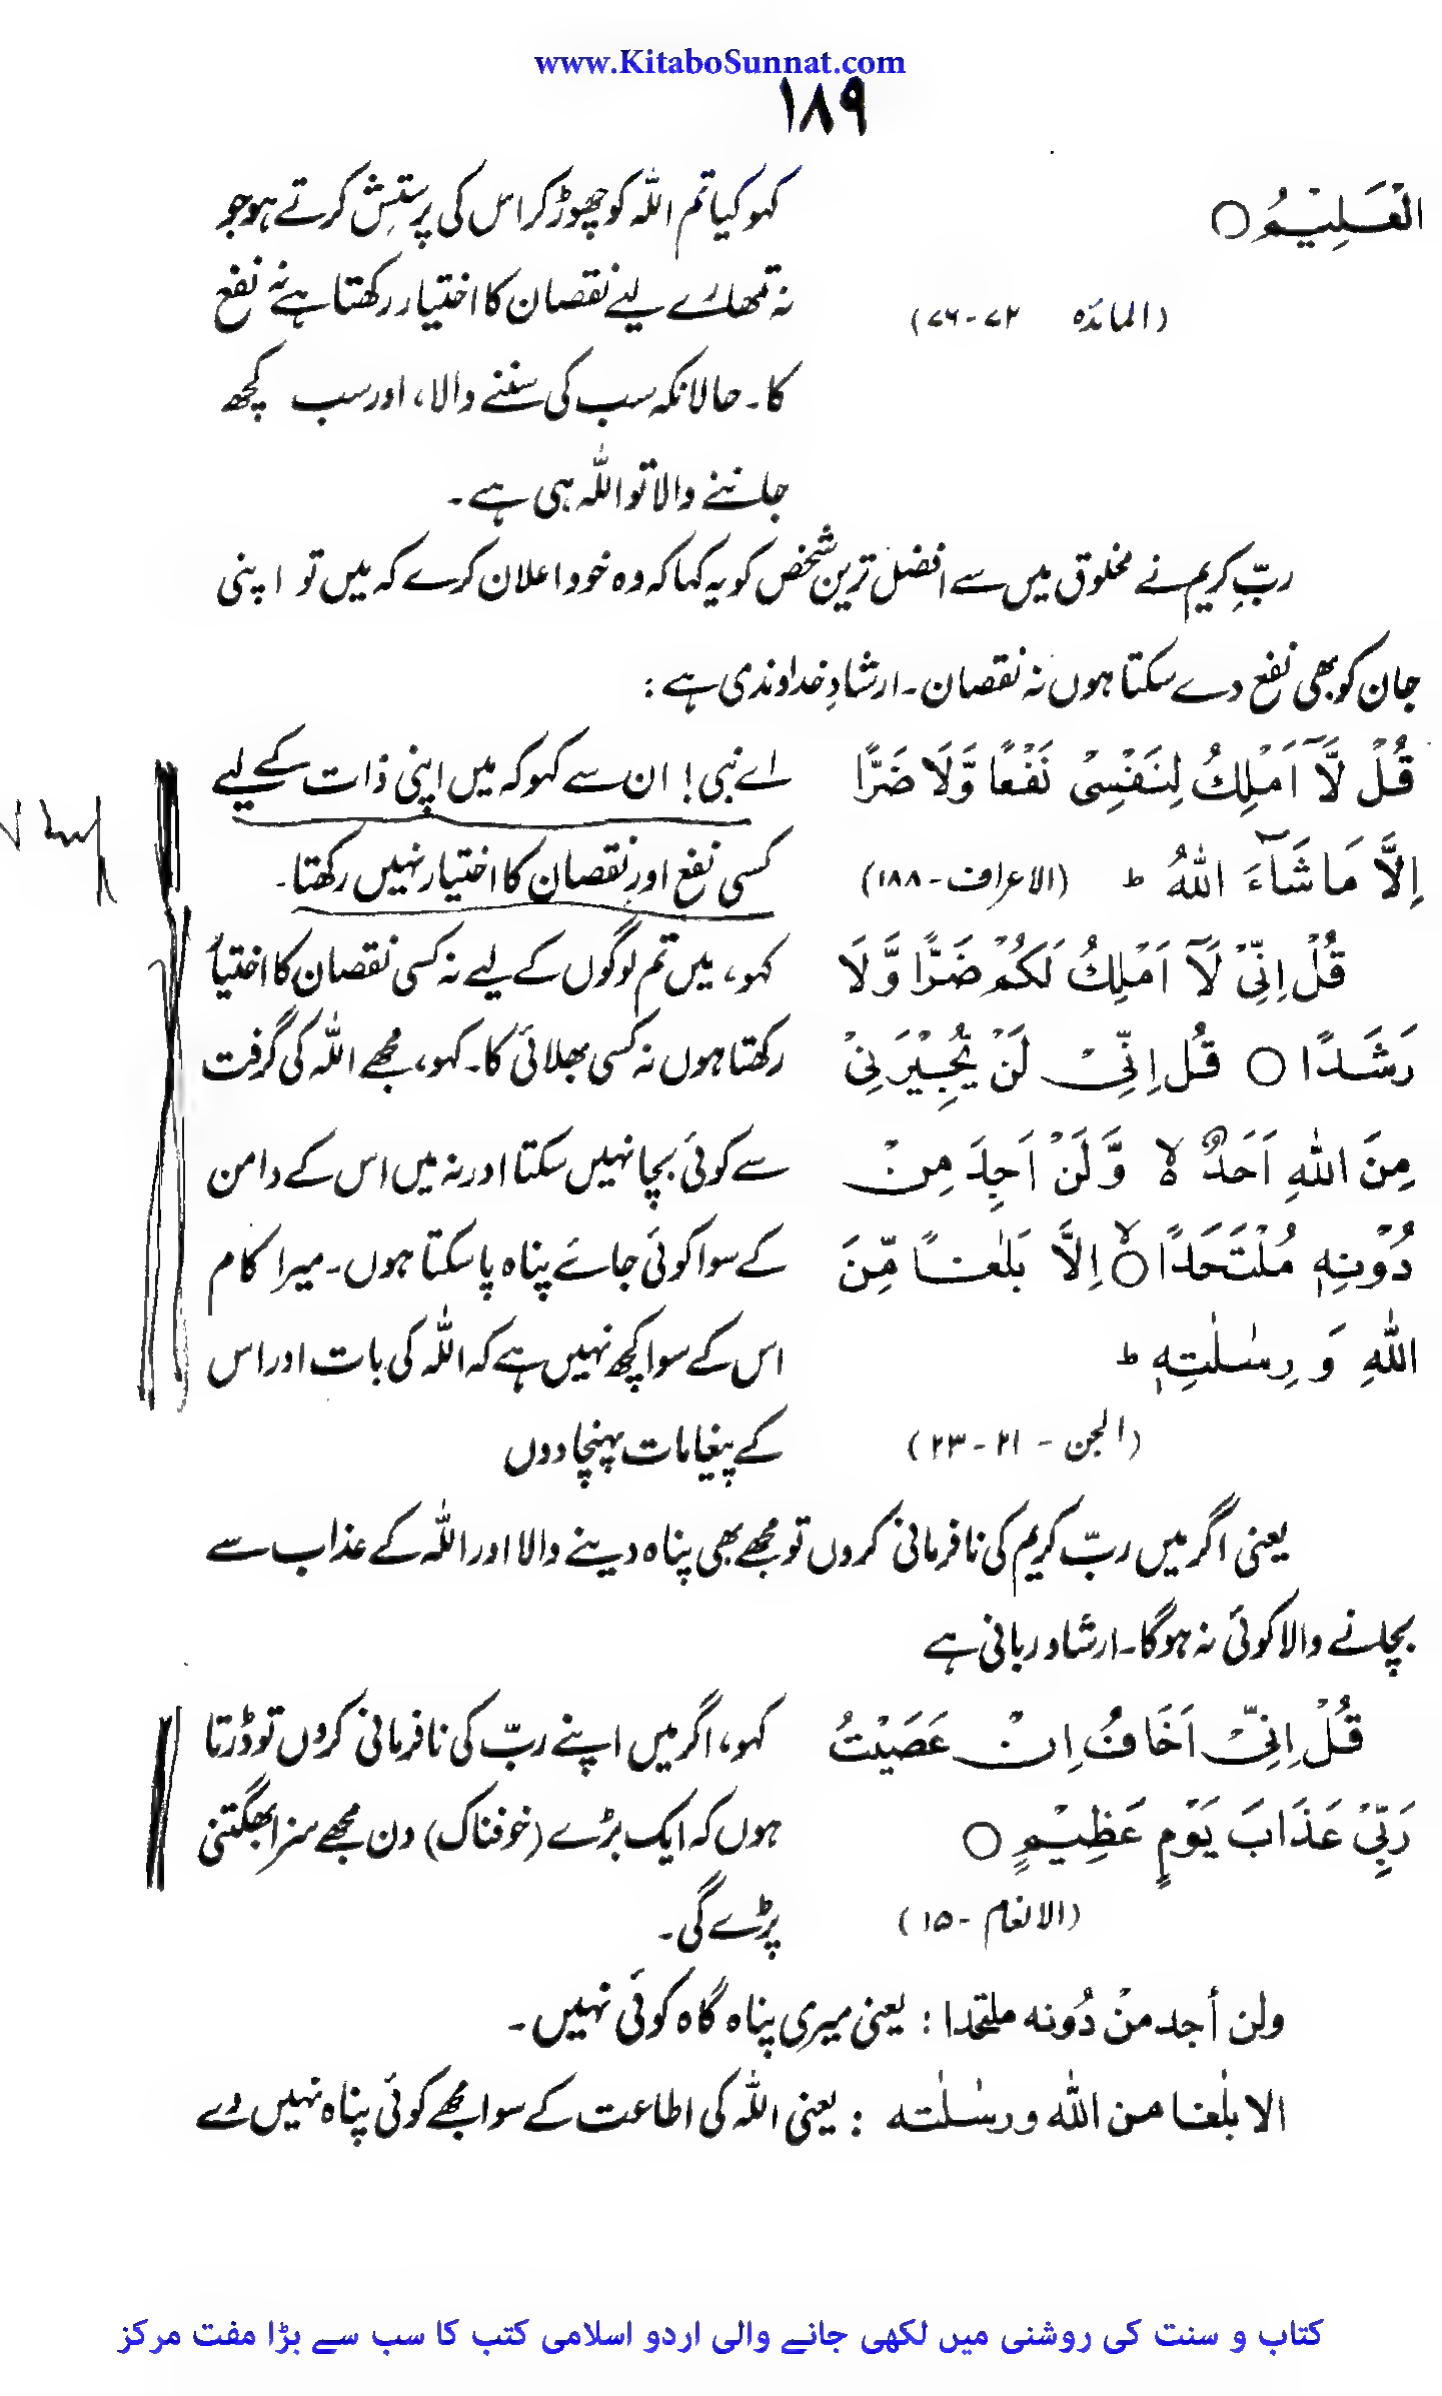 www.KitaboSunnat.com
۱۸۹
الْعَلِیْمُ ○
(المائدہ ۷۲-۷۶)
کہو کیا تم اللہ کو چھوڑ کر اس کی پرستش کرتے ہو جو
نہ تمھارے لیئے نقصان کا اختیار رکھتا ہے نہ نفع
کا۔ حالانکہ سب کی سننے والا، اور سب کچھ
جاننے والا تو اللہ ہی ہے۔
ربِّ کریم نے مخلوق میں سے افضل ترین شخص کو یہ کہا کہ وہ خود اعلان کرے کہ میں تو اپنی
جان کو بھی نفع دے سکتا ہوں نہ نقصان۔ ارشادِ خداوندی ہے:
قُلْ لَّآ اَمْلِكُ لِنَفْسِیْ نَفْعًا وَّلَا ضَرًّا
اِلَّا مَا شَآءَ اللّٰهُ ط (الاعراف-۱۸۸)
اے نبی! ان سے کہو کہ میں اپنی ذات کے لیے
کسی نفع اور نقصان کا اختیار نہیں رکھتا۔
قُلْ اِنِّیْ لَآ اَمْلِكُ لَكُمْ ضَرًّا وَّلَا
رَشَدًا ○ قُلْ اِنِّیْ لَنْ یُّجِیْرَنِیْ
مِنَ اللّٰهِ اَحَدٌ لا وَّلَنْ اَجِدَ مِنْ
دُوْنِهٖ مُلْتَحَدًا ○لا اِلَّا بَلٰغًا مِّنَ
اللّٰهِ وَ رِسٰلٰتِهٖ ط
(الجن - ۲۱-۲۳)
کہو، میں تم لوگوں کے لیے نہ کسی نقصان کا اختیار
رکھتا ہوں نہ کسی بھلائی کا۔ کہو، مجھے اللہ کی گرفت
سے کوئی بچا نہیں سکتا اور نہ میں اس کے دامن
کے سوا کوئی جائے پناہ پا سکتا ہوں۔ میرا کام
اس کے سوا کچھ نہیں ہے کہ اللہ کی بات اور اس
کے پیغامات پہنچا دوں
یعنی اگر میں ربّ کریم کی نافرمانی کروں تو مجھے بھی پناہ دینے والا اور اللہ کے عذاب سے
بچانے والا کوئی نہ ہوگا۔ ارشاد ربانی ہے
قُلْ اِنِّیْ اَخَافُ اِنْ عَصَیْتُ
رَبِّیْ عَذَابَ یَوْمٍ عَظِیْمٍ ○
(الانعام -۱۵)
کہو، اگر میں اپنے ربّ کی نافرمانی کروں تو ڈرتا
ہوں کہ ایک بڑے (خوفناک) دن مجھے سزا بھگتنی
پڑے گی۔
ولن أجد منْ دُونه ملتحدا : یعنی میری پناہ گاہ کوئی نہیں۔
الا بلٰغا من اللّٰہ ورسٰلٰته : یعنی اللہ کی اطاعت کے سوا مجھے کوئی پناہ نہیں دے
کتاب و سنت کی روشنی میں لکھی جانے والی اردو اسلامی کتب کا سب سے بڑا مفت مرکز